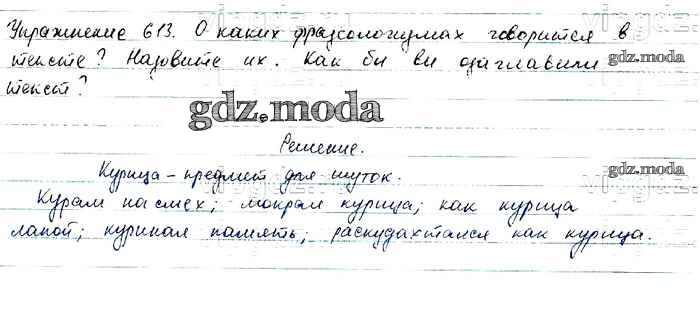 Упражнение 613. О каких фразеологизмах говорится в
тексте? Назовите их. Как бы вы озаглавили
gdz.moda
текст?
gdz.moda
Решение.
Курица - предмет для шуток.
gdz.moda
Курам на смех; мокрая курица; как курица
лапой; куриная память; раскудахтался как курица.
gdz.moda